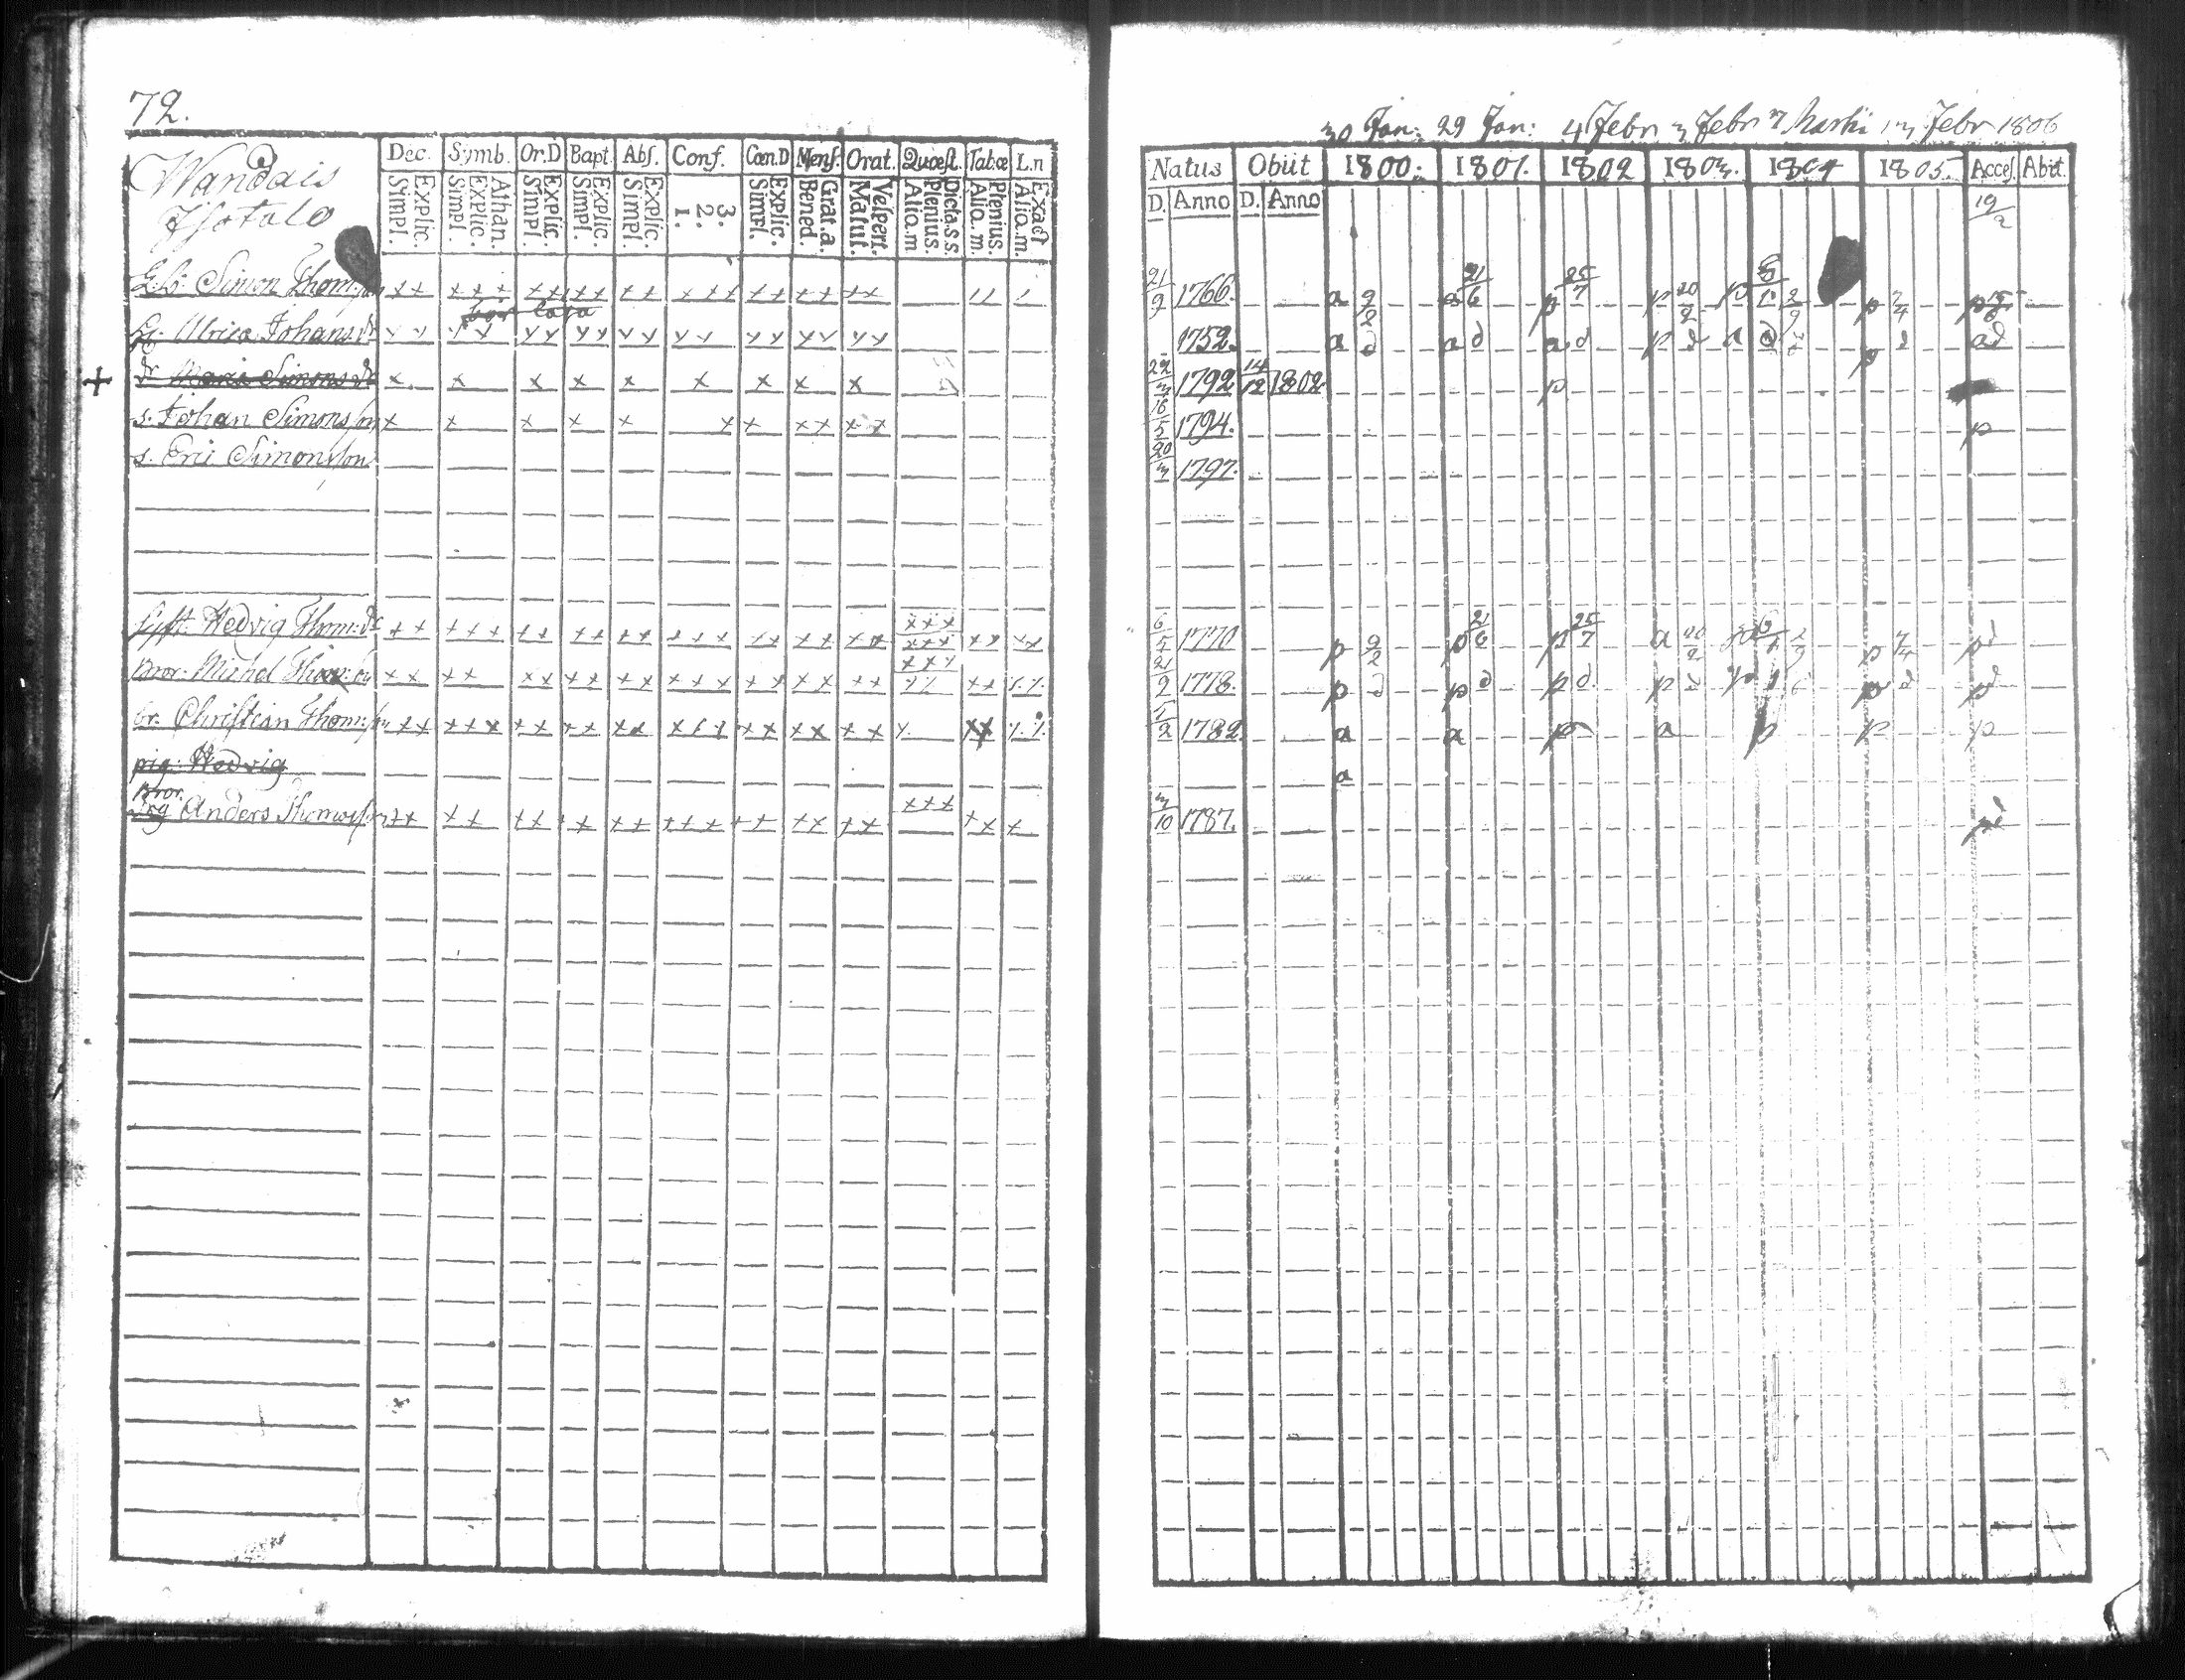 72.
Wandais
Isotalo
Dec. Symb. Or.D Bapt. Abſ. Conf. Cœn.D Menſ. Orat. Quœſt. Tab.œ L.n
Explic. Simpl. Athan. Explic. Simpl. Explic. Simpl. Explic. Simpl. Explic. Simpl. 3. 2. 1. Explic. Simpl. Grat.a. Bened. Veſpert. Matut. Dicta.s.s. Plenius. Alio.m Plenius. Alio.m. Exact Alio.m.
Simon Thom:ſon xx xxx xx xx xx xxx xx xx xx
Ulrica Johans dr xx xx xx xx xx xx xx xx xx
+ dr Maria Simons dr x x x x x x x x x
s. Johan Simonsſon x x x x x x x xx xx
s. Eric Simonsſon
Syſt. Hedvig Thom: dr xx xxx xx xx xx xxx xx xx xx xxx xxx xx xx
Bror. Michel Thom:ſon xx xx xx xx xx xxx xx xx xx xxx xx
br. Christian Thom:ſon xx xxx xx xx xx xxx xx xx xx x xx
pig: Hedvig
Bror.
Anders Thomasſon xx xx xx xx xx xxx xx xx xx xxx xx x
30 Jan: 29 Jan: 4 Febr 3 Febr 7 Martii 13 Febr 1806
Natus Obiit 1800. 1801. 1802 1803. 1804 1805. Acceſ. Abiit.
D. Anno D. Anno 19/2
21/9 1766. a 9/2 a 21/6 p 25/7 p 20/2 p 7/4
1752. a d a d a d p d a d p d ad
22/3 1792 14/12 1802 p
18/5 1794. p
20/3 1797.
6/5 1770 p 9/2 p 21/6 p 25/7 a 20/2 p 7/4 pd
21/9 1778. p d p d p d p d p d pd
5/2 1782. a a p a p p p
a
3/10 1787. pd